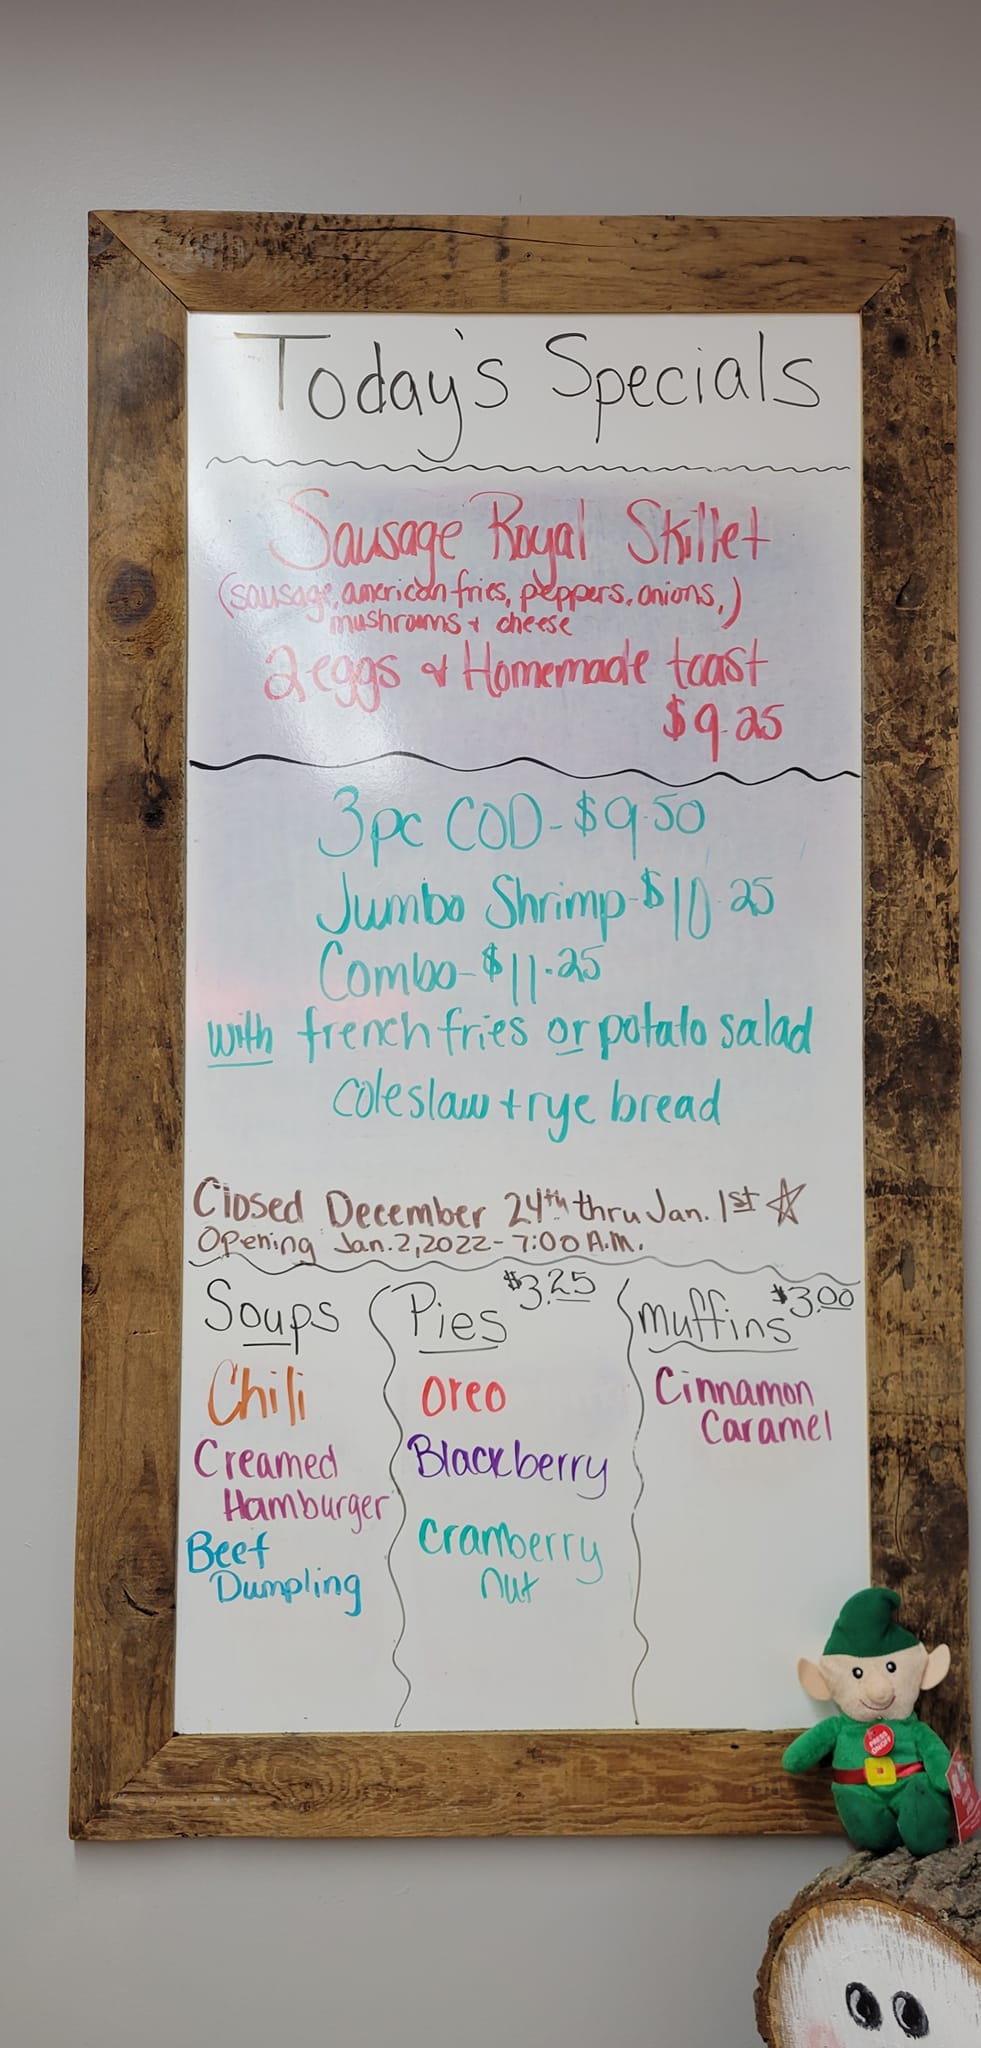 Today's Specials
Sausage Royal Skillet
(sausage, american fries, peppers, onions,)
mushrooms + cheese
2 eggs & Homemade toast
$9.25
3pc COD - $9.50
Jumbo Shrimp - $10.25
Combo - $11.25
with french fries or potato salad
coleslaw + rye bread
Closed December 24th thru Jan. 1st
Opening Jan. 2, 2022 - 7:00 A.M.
Soups
Chili
Creamed
Hamburger
Beef
Dumpling
Pies $3.25
Oreo
Blackberry
Cranberry
nut
Muffins $3.00
Cinnamon
Caramel
PRESS
ON/OFF